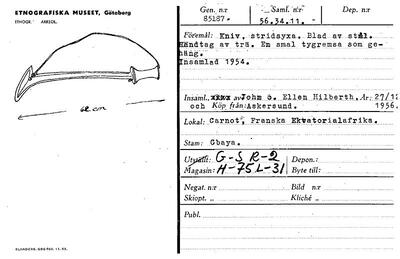 ETNOGRAFISKA MUSEET, Göteborg
ETNOGR. ARKEOL.
cm
Gen. n:r Saml. n:r Dep. n:r
85187. 56.34.11.
Föremål: Kniv, stridsyxa. Blad av stål.
Händtag av trä. En smal tygremsa som ge-
häng.
Insamlad 1954.
Insaml. av John o. Ellen Hilberth, År: 27/12
och Köp från: Askersund. 1956.
Lokal: Carnot, Franska Ekvatorialafrika.
Stam: Gbaya.
Utställt: G-S R-2 Depon.:
Magasin: H-75 L-31 Byte till:
Negat. n:r Bild n:r
Skiopt. „ Kliché „
Publ.